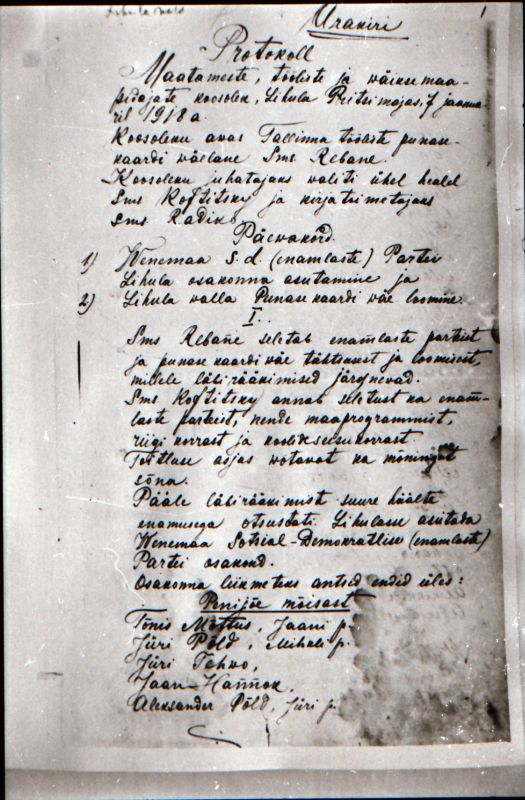 Lihula vald
Ärakiri
1
Protokoll
Maatameeste, tööliste ja väikse maa-
pidajate koosolek, Lihula Pritsimajas, 7 jaanua-
ril 1918 a.
Koosoleku avas Tallinna tööliste punase-
kaardi wäelane Sms Rebane.
Koosoleku juhatajaks waliti ühel healel
Sms Koftitsky ja kirjatoimetajaks
sms. Radik
Päewakord.
1) Wenemaa S. d. (enamlaste) Partei
Lihula osakonna asutamine ja
2) Lihula walla Punase kaardi wäe loomine.
I.
Sms Rebane seletab enamlaste parteist
ja punase kaardi wäe tähtsusest ja loomisest,
millele läbirääkimised järgnevad.
Sms Koftitsky annab seletust ka enam-
laste parteist, nende maaprogrammist,
riigi korrast ja koolide seisukorrast
asjas wõtavat ka mõningat
sõna.
Pääle läbirääkimist suure häälte
enamusega otsustati Lihulasse asutada
Wenemaa Sotsial-Demokratlise (enamlaste)
Partei osakond.
Osakonna liikmeteks antsid endid üles:
Penijõe mõisast
Tõnis Mõttus, Jaani p.
Jüri Põld, Mihkli p.
Jüri Tehwo,
Jaan Hannok,
Aleksander Põld, Jüri p.